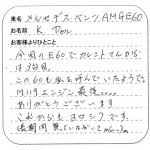 車名 メルセデス・ベンツ AMG E60
お名前 K Don
お客様よりひとこと
今回のE60でカレントさんから
は3台目。
この60も私を呼んでいたようで。
V8エンジン最後。。。。
ありがとうございます
これからもヨロシクです。